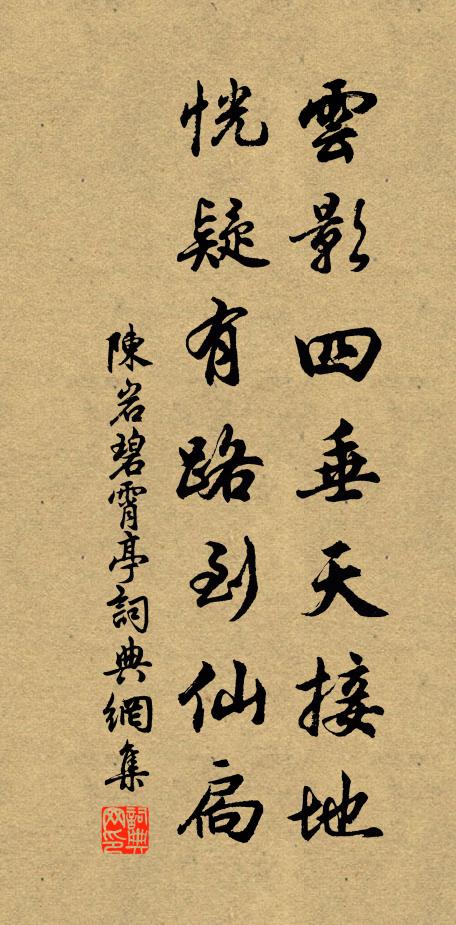 雲影四垂天接地
恍疑有路到仙扃
陳岩碧霄亭詞典網集
詞典網印